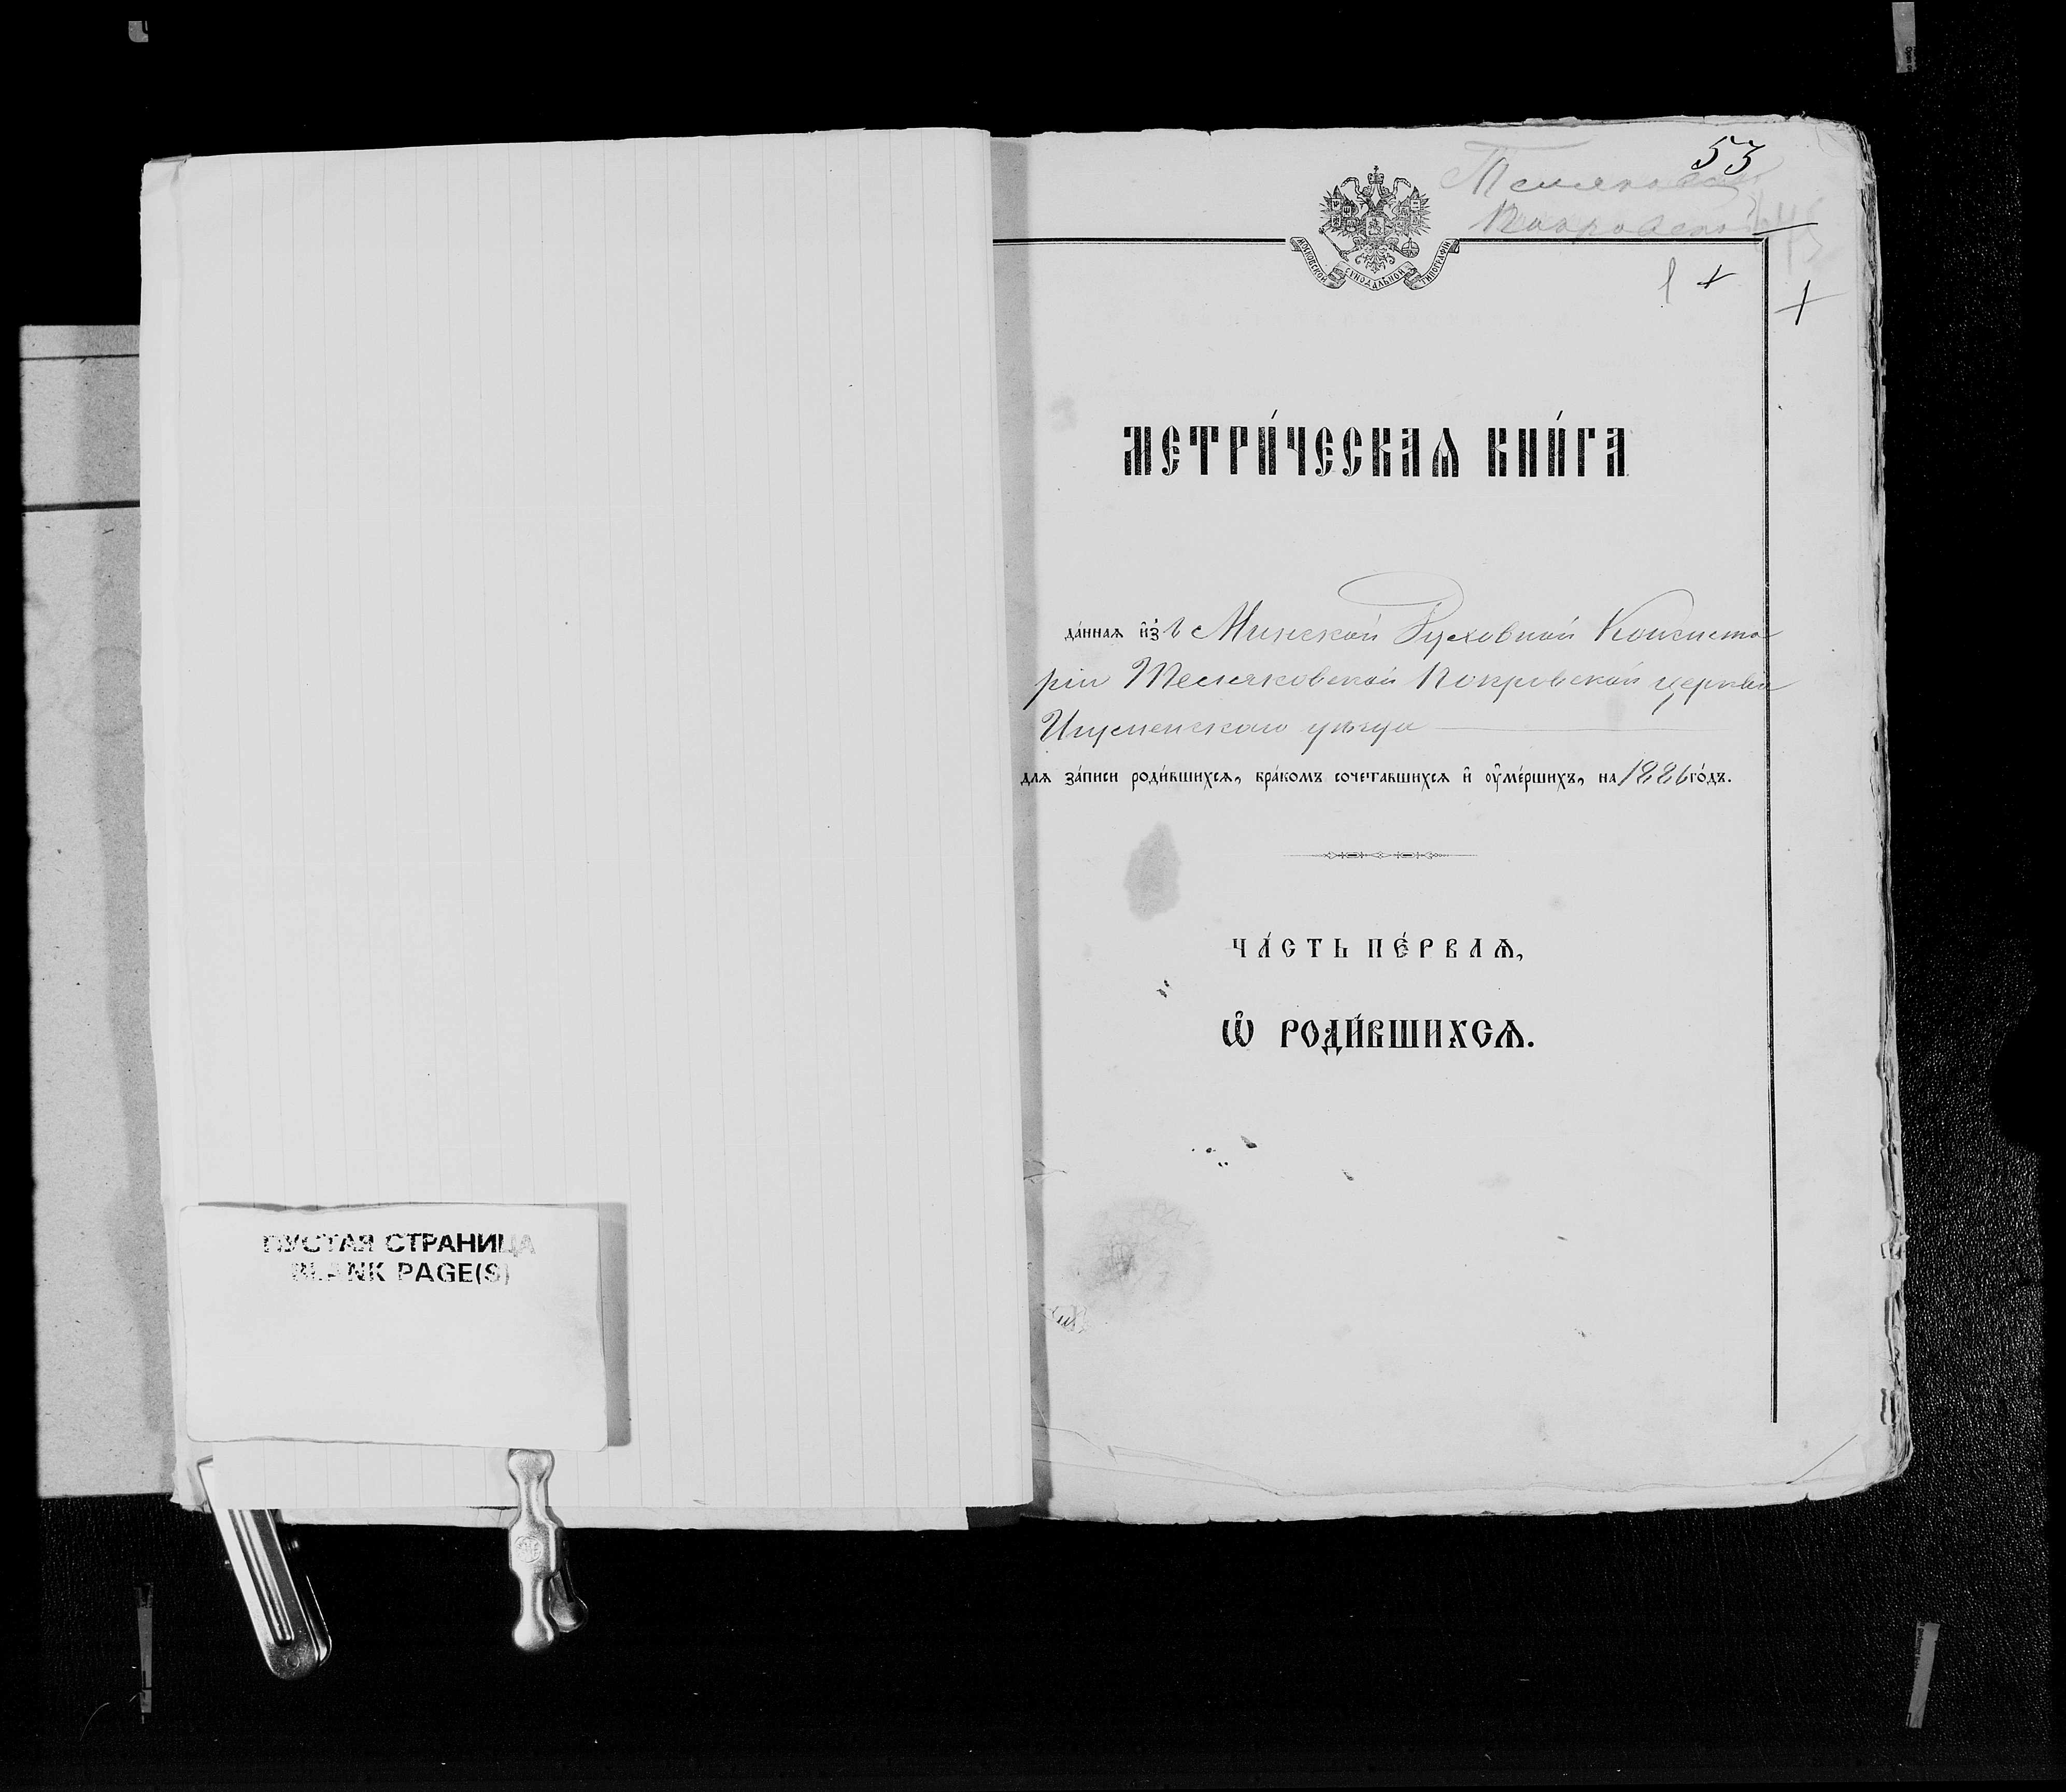 ПУСТАЯ СТРАНИЦА
BLANK PAGE(S)
53
Покровской
МОСКОВСКОЙ СѴНОДАЛЬНОЙ ТИПОГРАФІИ
МЕТРИ́ЧЕСКАѦ КНИ́ГА
да́ннаѧ и҆зъ Минской Духовной Консисто
ріи Тесняковской Покровской церкви
Игуменского уѣзда
длѧ за́писи роди́вшихсѧ, бра́комъ сочета́вшихсѧ и҆ ᲂу҆ме́ршихъ, на 1886 го́дъ.
ЧА́СТЬ ПЕ́РВАѦ,
Ѽ РОДИ́ВШИХСѦ.